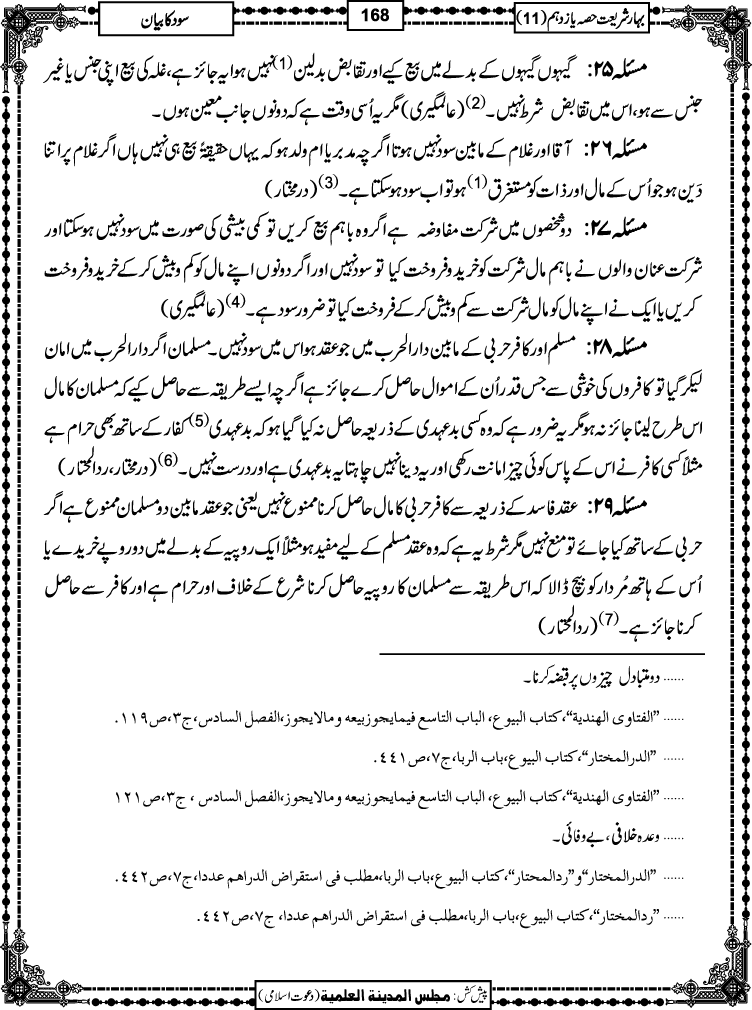 بہار شریعت حصہ یازدہم (11)
168
سود کا بیان
مسئلہ ۲۵: گیہوں گیہوں کے بدلے میں بیع کیے اور تقابض بدلین(1) نہیں ہوا یہ جائز ہے، غلہ کی بیع اپنی جنس یا غیر
جنس سے ہو، اس میں تقابض شرط نہیں۔(2) (عالمگیری) مگر یہ اُسی وقت ہے کہ دونوں جانب معین ہوں۔
مسئلہ ۲۶: آقا اور غلام کے مابین سود نہیں ہوتا اگرچہ مدبر یا ام ولد ہو کہ یہاں حقیقۃً بیع ہی نہیں ہاں اگر غلام پر اتنا
دَین ہو جو اُس کے مال اور ذات کو مستغرق(1) ہو تو اب سود ہو سکتا ہے۔(3) (درمختار)
مسئلہ ۲۷: دو شخصوں میں شرکت مفاوضہ ہے اگر وہ باہم بیع کریں تو کمی بیشی کی صورت میں سود نہیں ہو سکتا اور
شرکت عنان والوں نے باہم مال شرکت کو خرید و فروخت کیا تو سود نہیں اور اگر دونوں اپنے مال کو کم و بیش کر کے خرید و فروخت
کریں یا ایک نے اپنے مال کو مال شرکت سے کم و بیش کر کے فروخت کیا تو ضرور سود ہے۔(4) (عالمگیری)
مسئلہ ۲۸: مسلم اور کافر حربی کے مابین دارالحرب میں جو عقد ہو اس میں سود نہیں۔ مسلمان اگر دارالحرب میں امان
لیکر گیا تو کافروں کی خوشی سے جس قدر اُن کے اموال حاصل کرے جائز ہے اگرچہ ایسے طریقہ سے حاصل کیے کہ مسلمان کا مال
اس طرح لینا جائز نہ ہو مگر یہ ضرور ہے کہ وہ کسی بدعہدی کے ذریعہ حاصل نہ کیا گیا ہو کہ بدعہدی(5) کفار کے ساتھ بھی حرام ہے
مثلاً کسی کافر نے اس کے پاس کوئی چیز امانت رکھی اور یہ دینا نہیں چاہتا یہ بدعہدی ہے اور درست نہیں۔(6) (درمختار، ردالمحتار)
مسئلہ ۲۹: عقد فاسد کے ذریعہ سے کافر حربی کا مال حاصل کرنا ممنوع نہیں یعنی جو عقد مابین دو مسلمان ممنوع ہے اگر
حربی کے ساتھ کیا جائے تو منع نہیں مگر شرط یہ ہے کہ وہ عقد مسلم کے لیے مفید ہو مثلاً ایک روپیہ کے بدلے میں دو روپے خریدے یا
اُس کے ہاتھ مُردار کو بیچ ڈالا کہ اس طریقہ سے مسلمان کا روپیہ حاصل کرنا شرع کے خلاف اور حرام ہے اور کافر سے حاصل
کرنا جائز ہے۔(7) (ردالمحتار)
...... دو متبادل چیزوں پر قبضہ کرنا۔
...... ”الفتاوی الهندية“، كتاب البيوع، الباب التاسع فيمايجوزبيعه ومالايجوز، الفصل السادس، ج۳، ص۱۱۹.
...... ”الدرالمختار“، كتاب البيوع، باب الربا، ج۷، ص۴۴۱.
...... ”الفتاوی الهندية“، كتاب البيوع، الباب التاسع فيمايجوزبيعه ومالايجوز، الفصل السادس، ج۳، ص۱۲۱
...... وعدہ خلافی، بے وفائی۔
...... ”الدرالمختار“ و”ردالمحتار“، كتاب البيوع، باب الربا، مطلب فی استقراض الدراهم عددا، ج۷، ص۴۴۲.
...... ”ردالمحتار“، كتاب البيوع، باب الربا، مطلب فی استقراض الدراهم عددا، ج۷، ص۴۴۲.
پیش کش: مجلس المدينة العلمية (دعوت اسلامی)